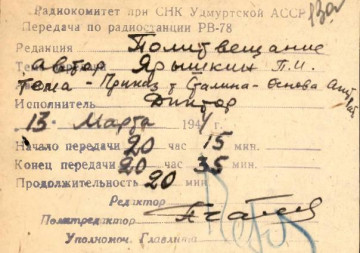 Радиокомитет при СНК Удмуртской АССР
Передача по радиостанции РВ-78
Редакция Политвещание
автор Ярышкин П.И.
тема - Приказ т Сталина - основа
Исполнитель Диктор
13 Марта 194
Начало передачи 20 час 15 мин.
Конец передачи 20 час 35 мин.
Продолжительность 20 мин
Редактор
Политредактор
Уполномоч. Главлита